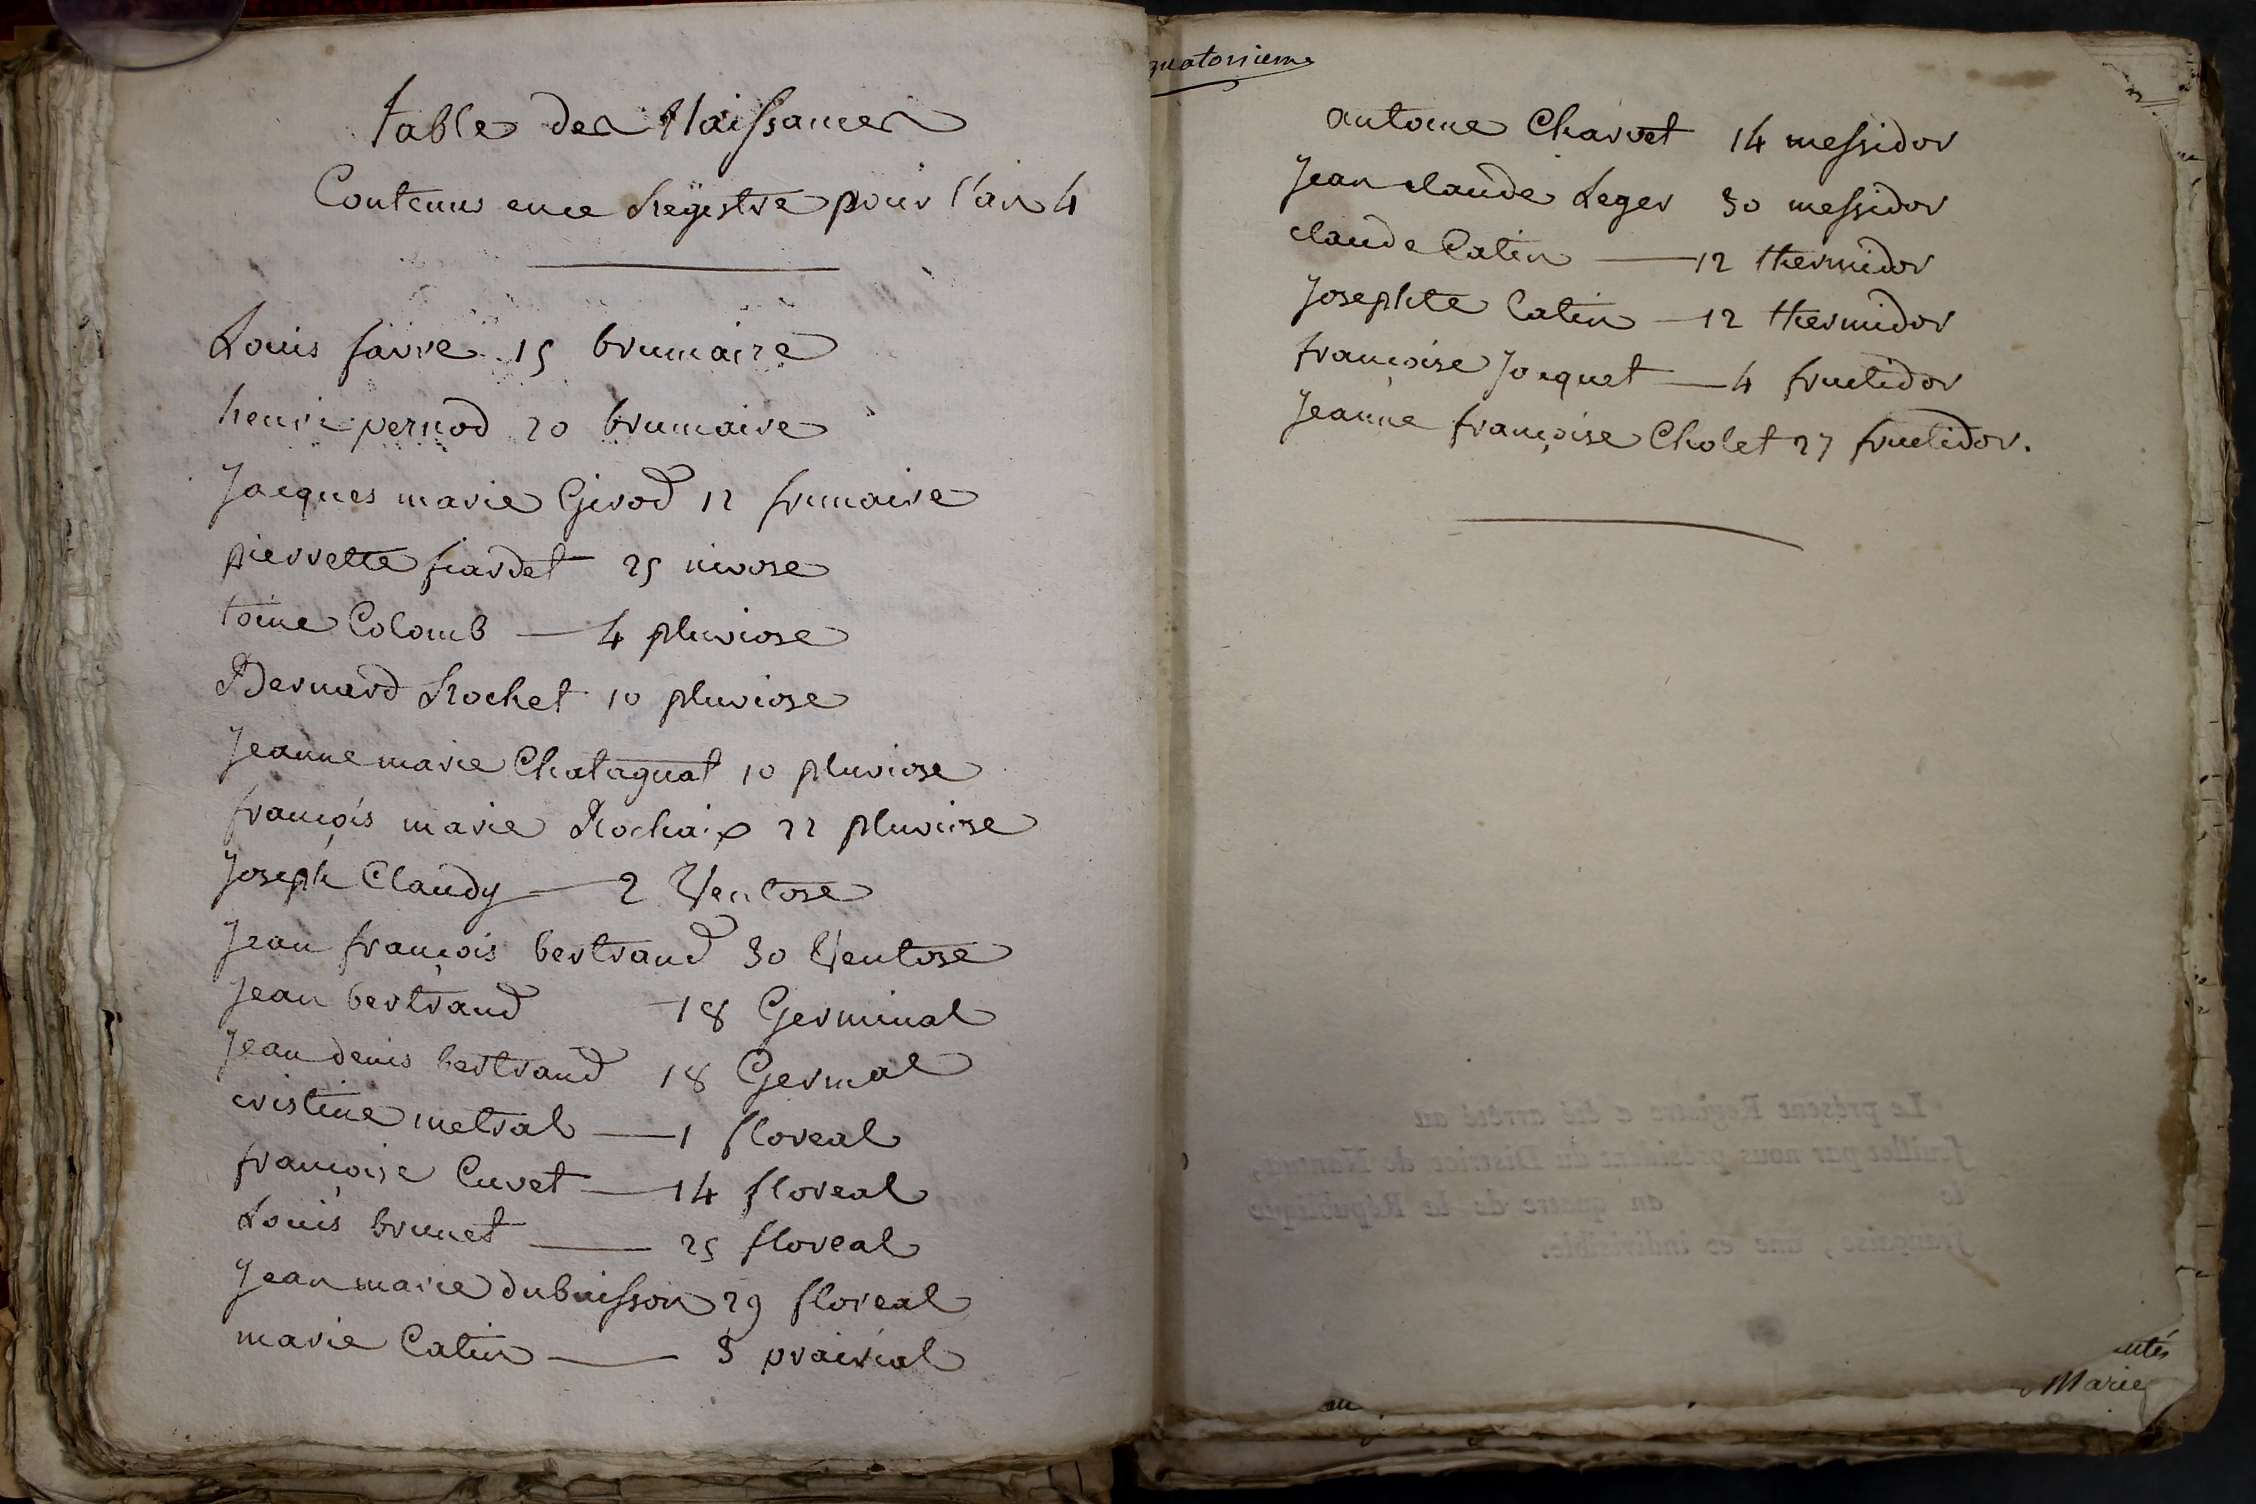 table des Naissances
Contenus en ce Registre pour l'an 4
Louis favre 15 brumaire
henri pernod 20 brumaire
Jacques marie Girod 12 frimaire
pierrette fiardet 25 nivose
toine Colomb — 4 pluviose
Bernard Rochet 10 pluviose
Jeanne marie Chatagnat 10 pluviose
françois marie Rochaix 22 pluviose
Joseph Claudy — 2 Ventose
Jean françois bertrand 30 Ventose
Jean bertrand — 18 Germinal
Jean denis bertrand 18 Germal
cristine metral — 1 floreal
françoise Cuvet — 14 floreal
Louis brunet — 25 floreal
Jean marie dubuisson 29 floreal
marie Catin — 3 prairial
quatorsieme
antoine Charvet 14 messidor
Jean claude Leger 30 messidor
claude Catin — 12 thermidor
Josephte Catin — 12 thermidor
françoise Jacquet — 4 fructidor
Jeanne françoise Cholet 27 fructidor.
Le présent Registre a été arrêté au
feuillet par nous président du District de Nantua,
le an quatre de la République
française, une et indivisible.
Marie